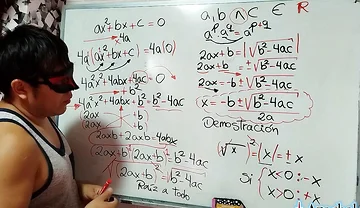 ax²+bx+C = 0
4a
4a(ax²+bx+C) = 4a(0)
4a²x²+4abx+4ac = 0
4a²x²+4abx+b² = b²-4ac
(2ax +b)
(2ax +b)
2abx+2abx=4abx
(2ax+b)(2ax+b) = b²-4ac
√(2ax+b)² = √b²-4ac
Raiz a todo
a, b ∧ C ∈ R
aᵖ·a^q = a^p+q
2ax+b = |√b²-4ac|
2ax+b = ±√b²-4ac
2ax = -b ±√b²-4ac
x = -b ±√b²-4ac
2a
Demostración
(√x)² = |x| = ± x
Si { x<0 :-x
x>0 :+x